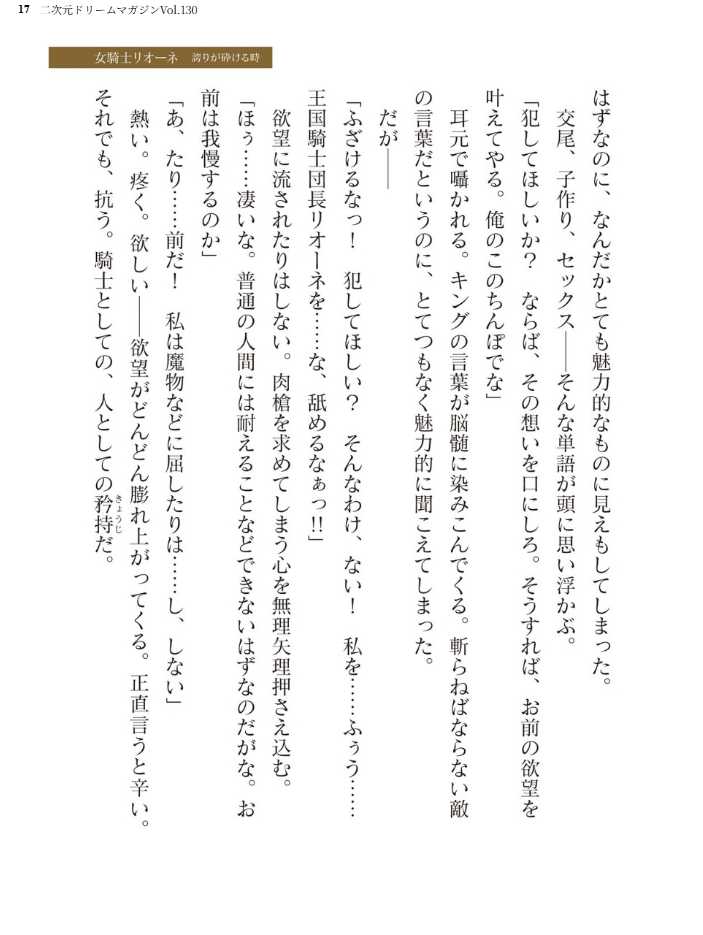 17 二次元ドリームマガジンVol.130
女騎士リオーネ 誇りが砕ける時
はずなのに、なんだかとても魅力的なものに見えもしてしまった。
　交尾、子作り、セックス――そんな単語が頭に思い浮かぶ。
「犯してほしいか？　ならば、その想いを口にしろ。そうすれば、お前の欲望を
叶えてやる。俺のこのちんぽでな」
　耳元で囁かれる。キングの言葉が脳髄に染みこんでくる。斬らねばならない敵
の言葉だというのに、とてつもなく魅力的に聞こえてしまった。
　だが――
「ふざけるなっ！　犯してほしい？　そんなわけ、ない！　私を……ふぅう……
王国騎士団長リオーネを……な、舐めるなぁっ!!」
　欲望に流されたりはしない。肉槍を求めてしまう心を無理矢理押さえ込む。
「ほぅ……凄いな。普通の人間には耐えることなどできないはずなのだがな。お
前は我慢するのか」
「あ、たり……前だ！　私は魔物などに屈したりは……し、しない」
　熱い。疼く。欲しい――欲望がどんどん膨れ上がってくる。正直言うと辛い。
それでも、抗う。騎士としての、人としての矜持だ。
きょうじ